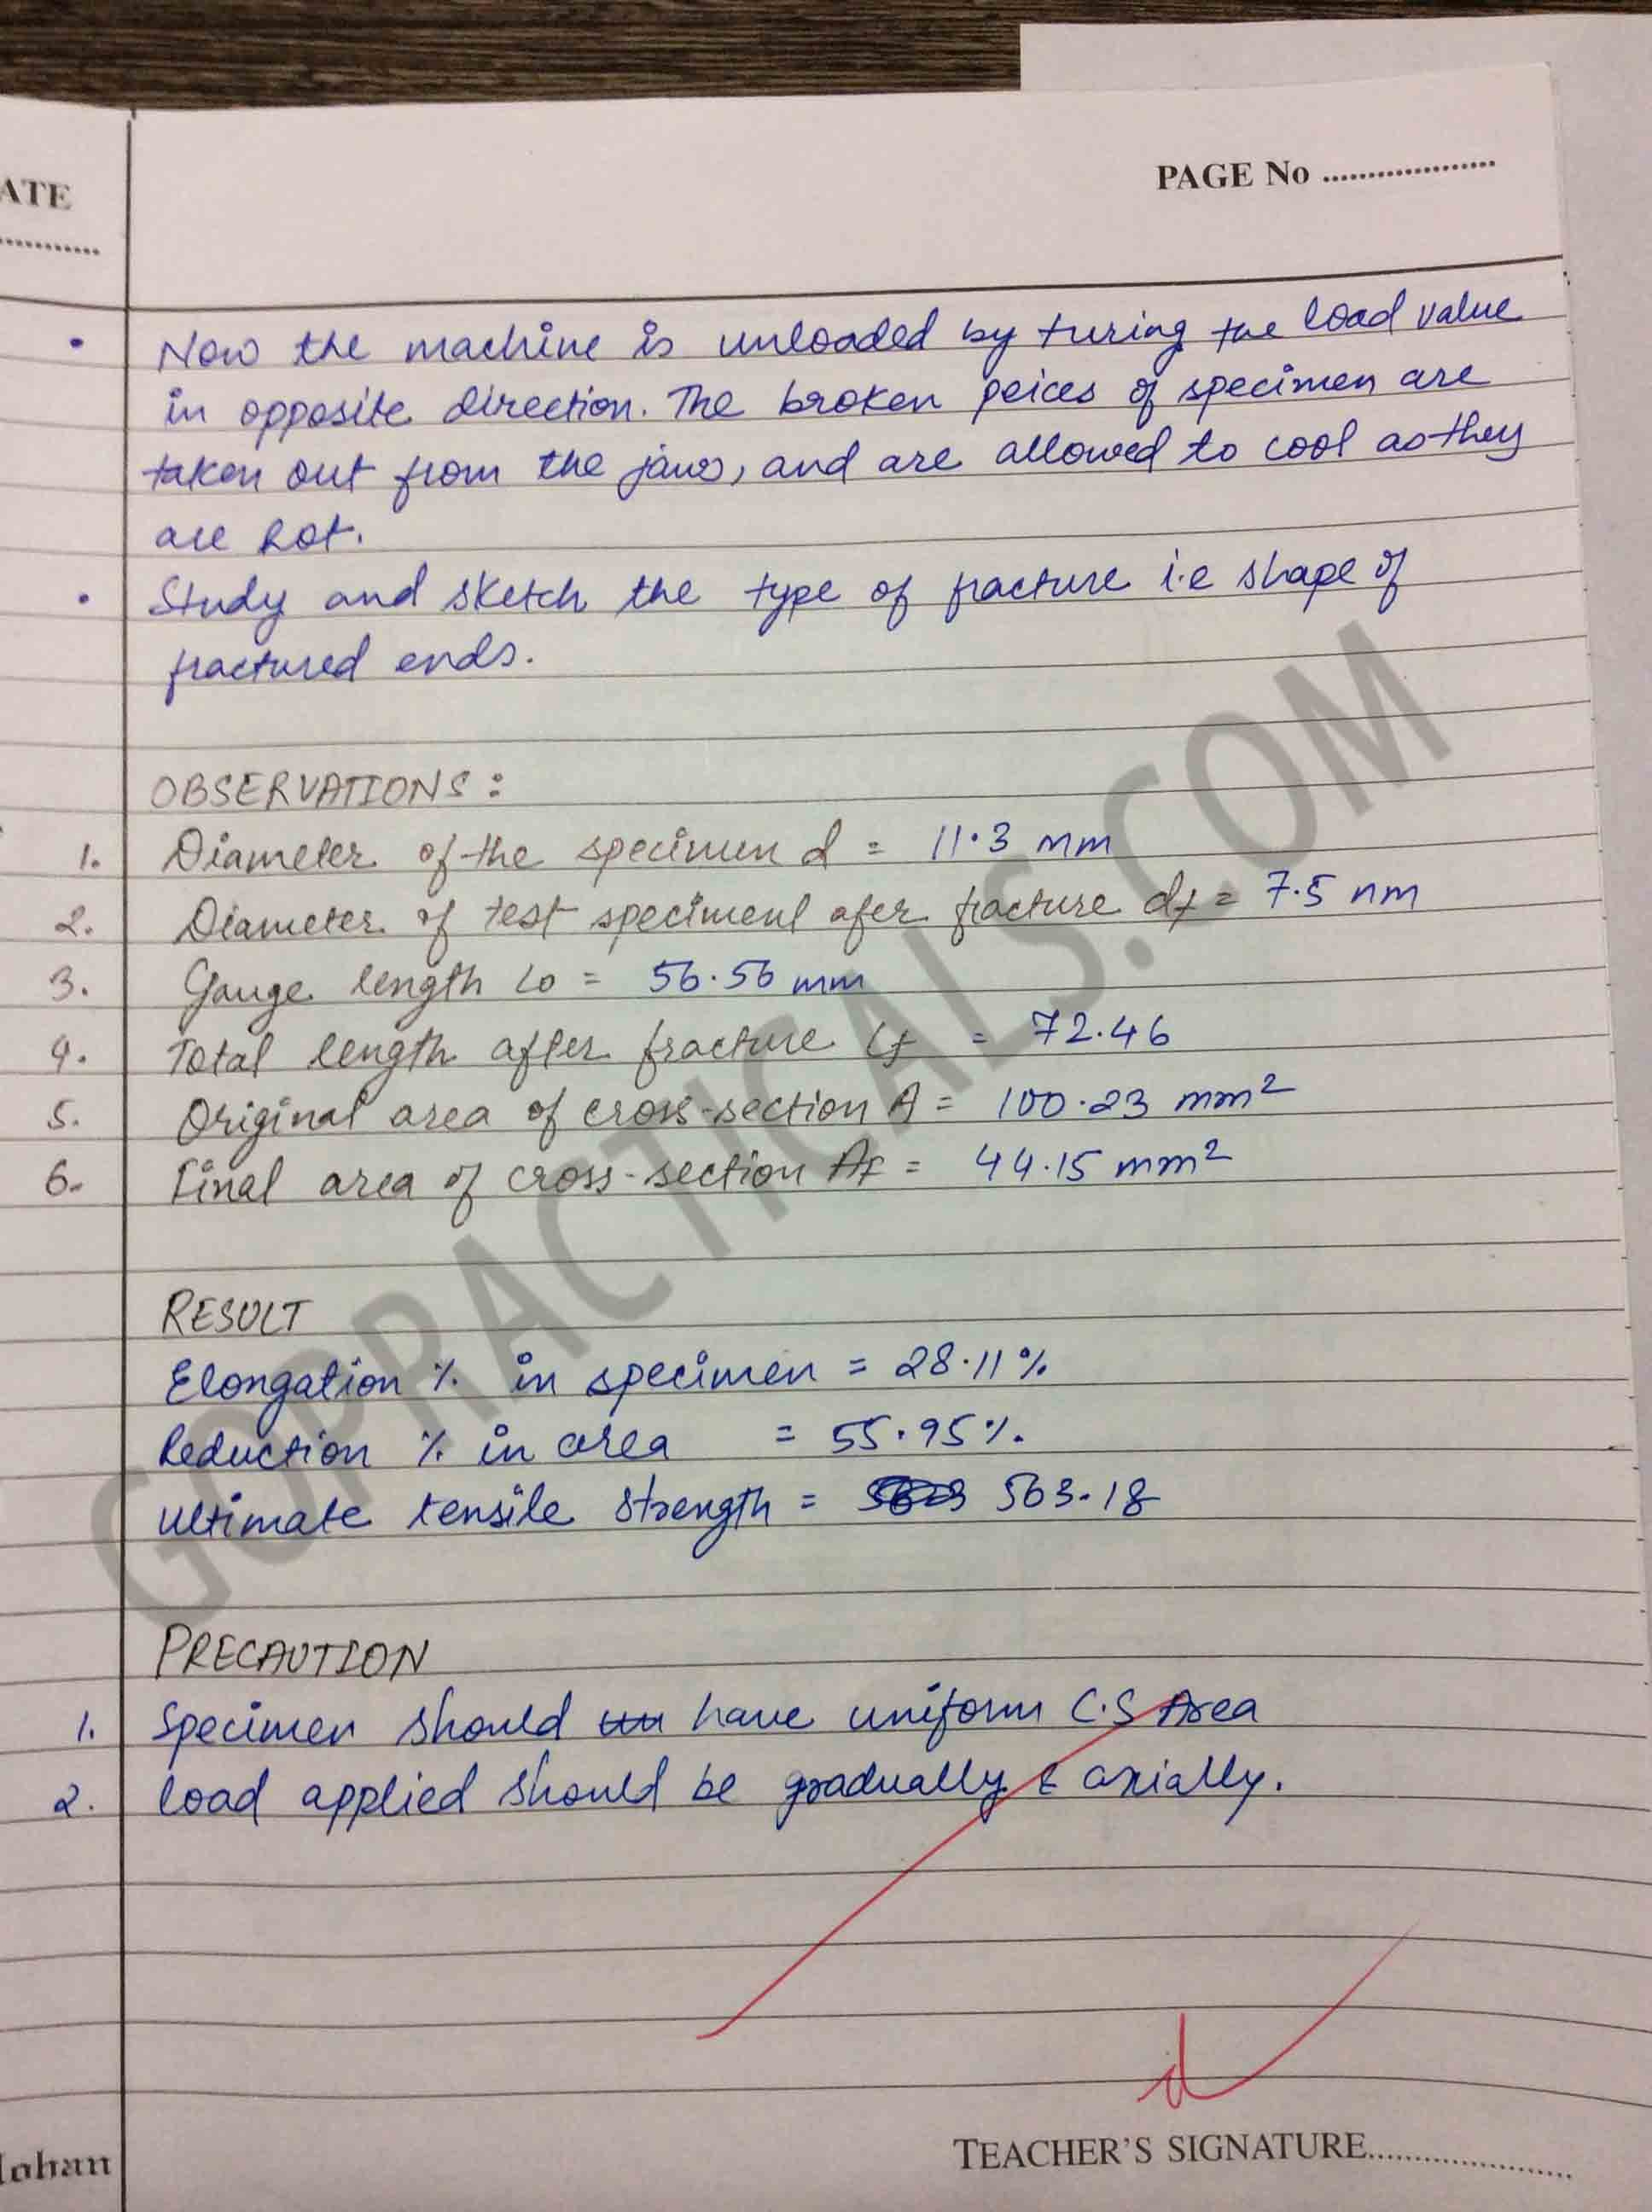 ATE
PAGE No ....................
............
• Now the machine is unloaded by turing the load value
in opposite direction. The broken peices of specimen are
taken out from the jaws, and are allowed to cool as they
are hot.
• Study and sketch the type of fracture i.e shape of
fractured ends.
OBSERVATIONS :
1. Diameter of the specimen d = 11.3 mm
2. Diameter of test speciment afer fracture df = 7.5 nm
3. Gauge length Lo = 56.56 mm
4. Total length after fracture Lf = 72.46
5. Original area of cross-section A = 100.23 mm²
6. Final area of cross-section Af = 44.15 mm²
RESULT
Elongation % in specimen = 28.11%
Reduction % in area = 55.95%.
Ultimate tensile strength = 563.18
PRECAUTION
1. Specimen should have uniform C.S Area
2. load applied should be gradually & axially.
TEACHER'S SIGNATURE........................
lohan
GOPRACTICALS.COM